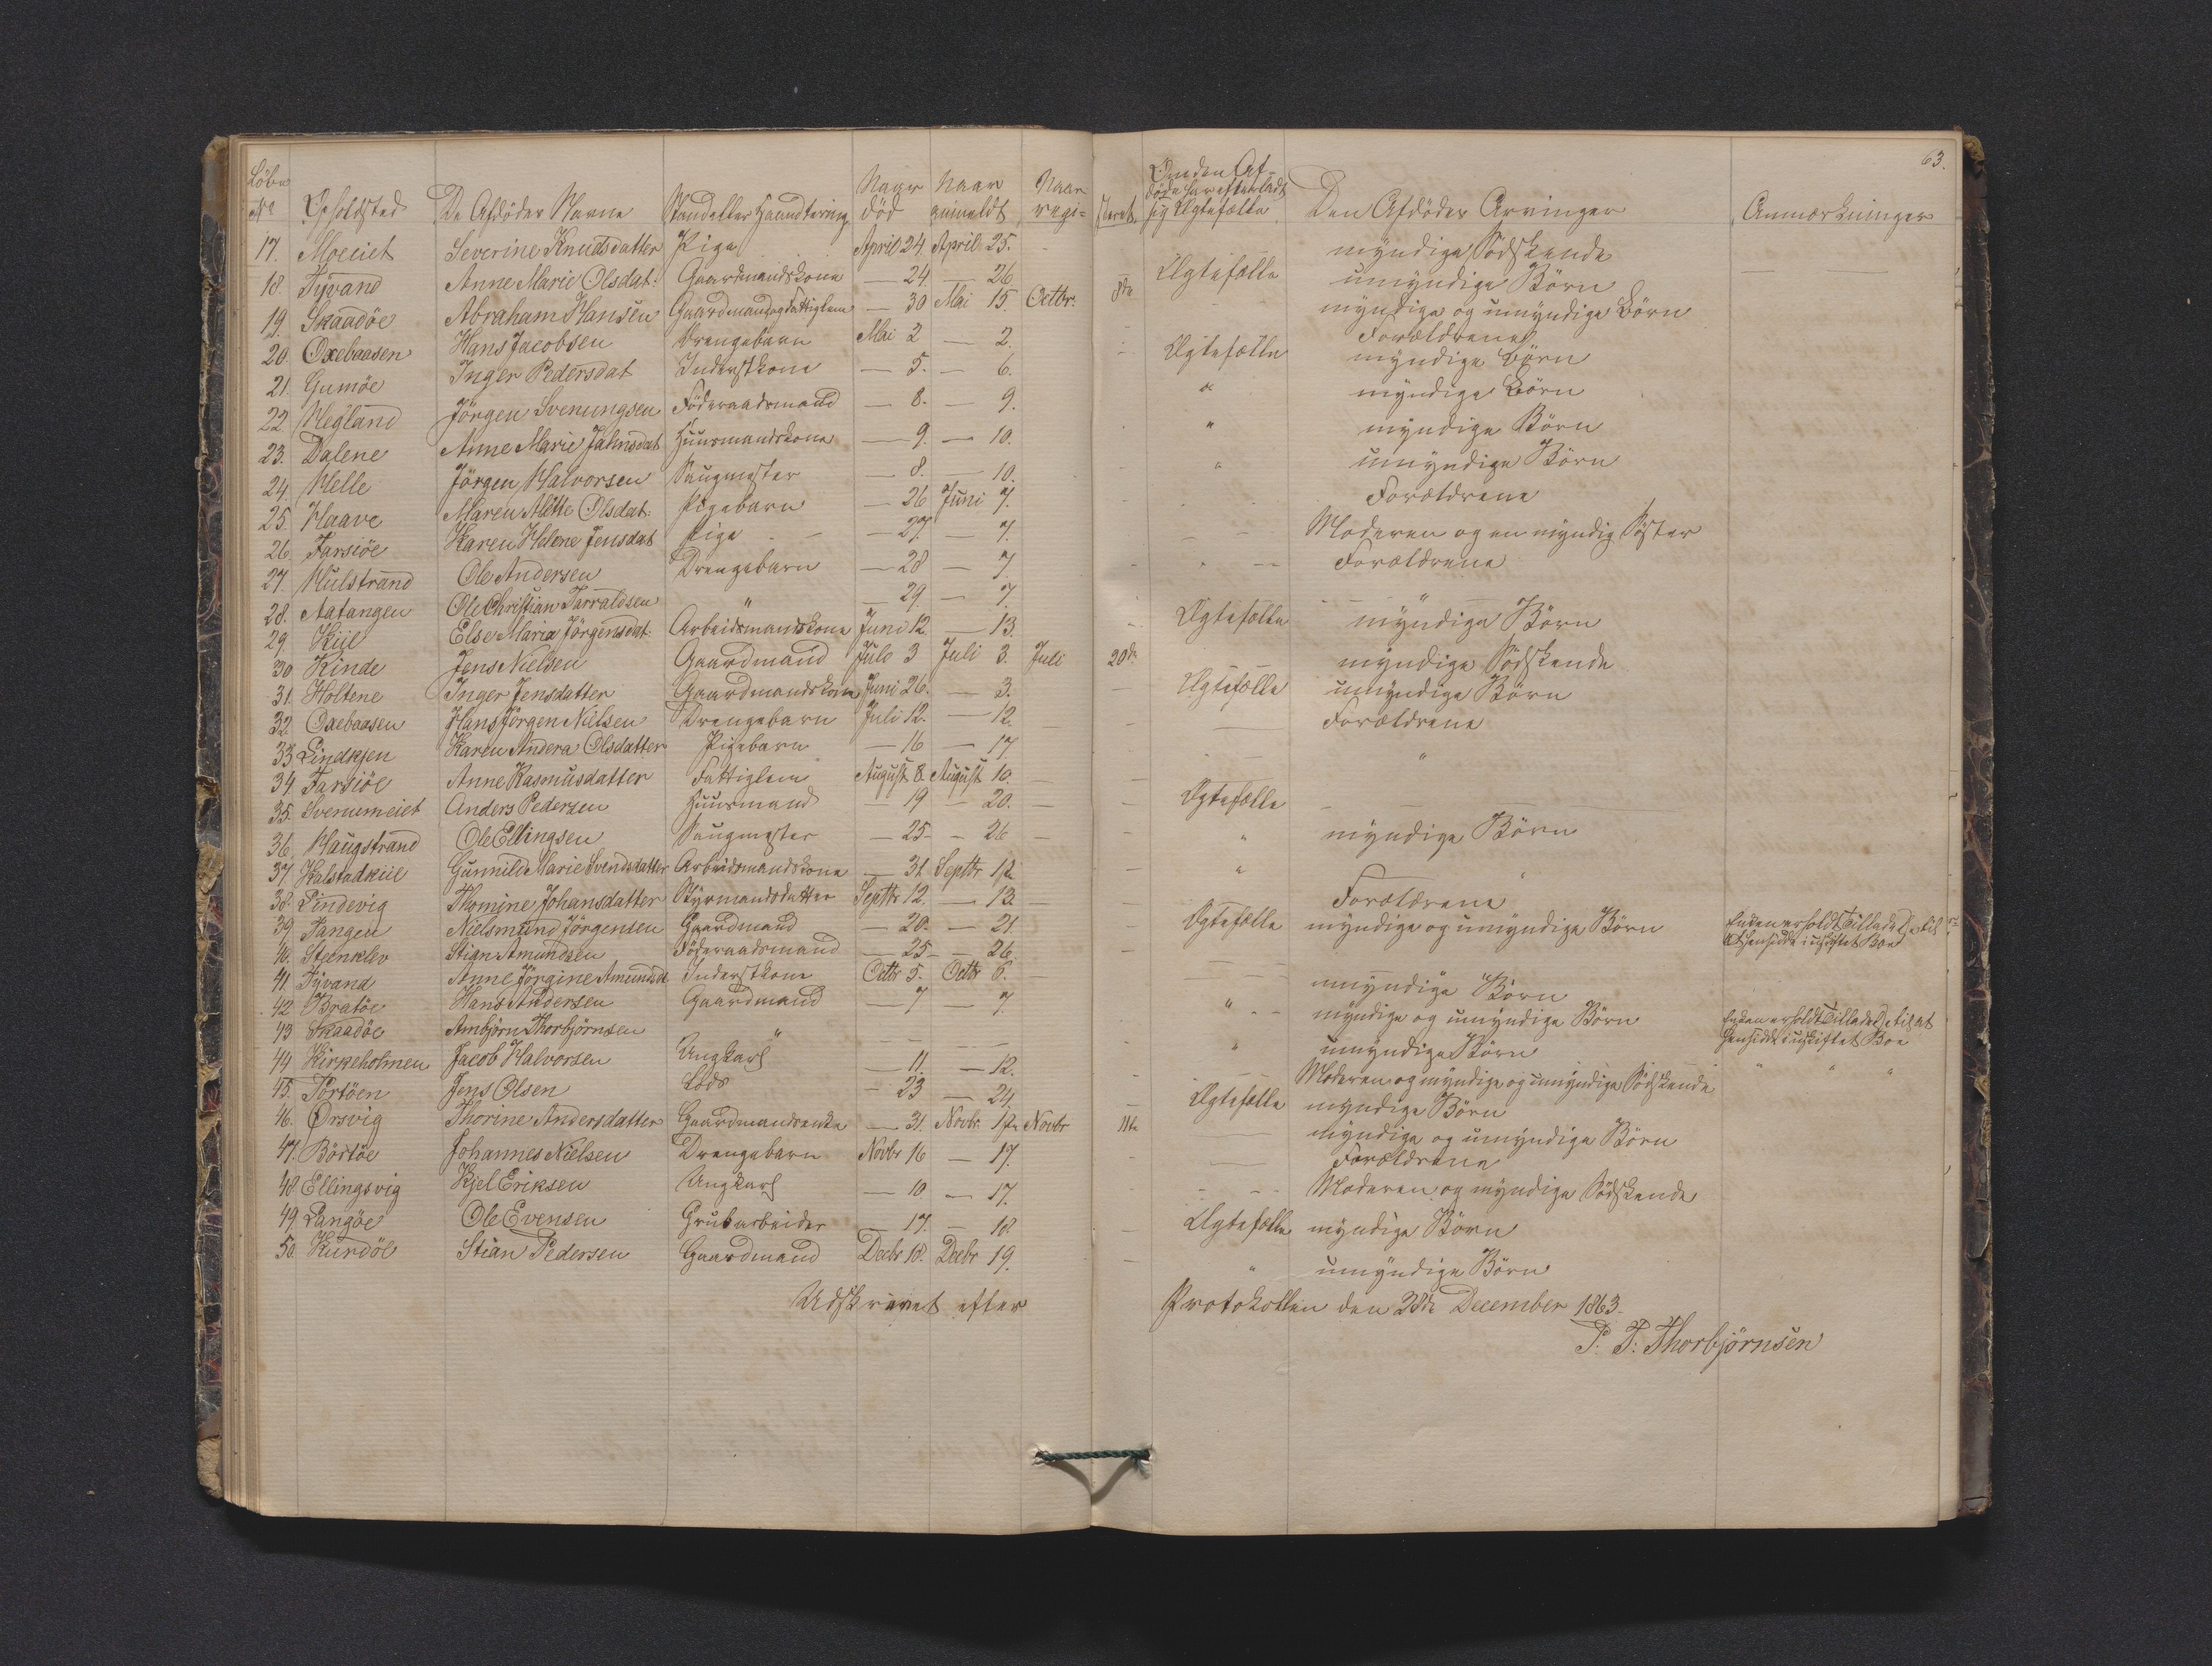 63.
Løbe No Opholdsted De Afdødes Navne Stand eller Haandtering Naar død Naar anmeldt Naar regi- streret Om den Af- døde har efterladt sig Ægtefælle Den Afdødes Arvinger Anmærkninger
17. Moeiet Severine Knudsdatter Pige April 24. April 25. myndige Sødskende
18. Tyvand Anne Marie Olsdat: Gaardmandskone — 24. — 26 Ægtefælle umyndige Børn
19. Skaadøe Abraham Hansen Gaardmand og Fattiglem — 30 Mai 15. Octbr. 8de myndige og umyndige Børn
20. Oxebaasen Hans Jacobsen Drengebarn Mai 2 — 2. Forældrene
21. Gumøe Inger Pedersdat Inderstkone — 5. — 6. Ægtefælle myndige Børn
22. Hegland Jørgen Svenungsen Føderaadsmand — 8. — 9. " myndige Børn
23. Dalene Anne Marie Jahnsdat Huusmandskone — 9. — 10. " myndige Børn
24. Helle Jørgen Halvorsen Saugmester — 8. — 10. " umyndige Børn
25. Haave Maren Mette Olsdat: Pigebarn — 26 Juni 7. Forældrene
26. Farsiøe Karen Helene Jensdat Pige — 27. — 7. Moderen og en myndig Søster
27. Hulstrand Ole Andersen Drengebarn — 28 — 7. Forældrene
28. Aatangen Ole Christian Tarraldsen " — 29. — 7. "
29. Kiil Else Maria Jørgensdat: Arbeidsmandskone Juni 12. — 13. Ægtefælle myndige Børn
30 Kinde Jens Nielsen Gaardmand Juli 3 Juli 3. Juli 20de myndige Sødskende
31. Holtene Inger Jensdatter Gaardmandskone Juni 26. — 3. Ægtefælle umyndige Børn
32. Oxebaasen Hans Jørgen Nielsen Drengebarn Juli 12. — 12. Forældrene
33. Lindkjen Karen Andera Olsdatter Pigebarn — 16 — 17 "
34. Farsiøe Anne Rasmusdatter Fattiglem August 8. August 10.
35. Svenumeiet Anders Pedersen Huusmand — 19 — 20. — Ægtefælle
36. Haugstrand Ole Ellingsen Saugmester — 25 — 26 — " myndige Børn
37. Kalstadkiil Gunnild Marie Svendsdatter Arbeidsmandskone — 31. Septbr. 1ste " "
38. Lindevig Thomine Johansdatter Styrmandsdatter Septbr. 12. — 13. Forældrene
39. Tangen Nielsmund Jørgensen Gaardmand — 20. — 21 Ægtefælle myndige og umyndige Børn Enken erholdt Tilladelse til at hensidde i uskiftet Boe
40. Steenklev Stian Amundsen Føderaadsmand — 25 — 26
41. Tyvand Anne Jørgine Amundsdt Inderstkone Octbr 5. Octbr 6. umyndige Børn
42. Bratøe Hans Andersen Gaardmand — 7 — 7. " myndige og umyndige Børn Enken erholdt Tilladelse til at hensidde i uskiftet Boe
43 Skaadøe Ambjørn Thorbjørnsen " — — " umyndige Børn " " "
44 Kirkeholmen Jacob Halvorsen Ungkarl — 11. — 12. Moderen og myndige og umyndige Sødskende
45. Tørtøen Jens Olsen Lods — 23 — 24. Ægtefælle myndige Børn
46. Ørsvig Thorine Andersdatter Gaardmandsenke — 31. Novbr. 1ste Novbr 11te myndige og umyndige Børn
47. Børtøe Johannes Nielsen Drengebarn Novbr 16 — 17. Forældrene
48. Ellingsvig Kjel Eriksen Ungkarl — 10 — 17. Moderen og myndige Sødskende
49. Langøe Ole Evensen Grubearbeider — 17. — 18. Ægtefælle myndige Børn
50 Furdøe Stian Pedersen Gaardmand Decbr 18. Decbr 19. " umyndige Børn
Udskrevet efter Protokollen den 28de December 1863.
P. T. Thorbjørnsen